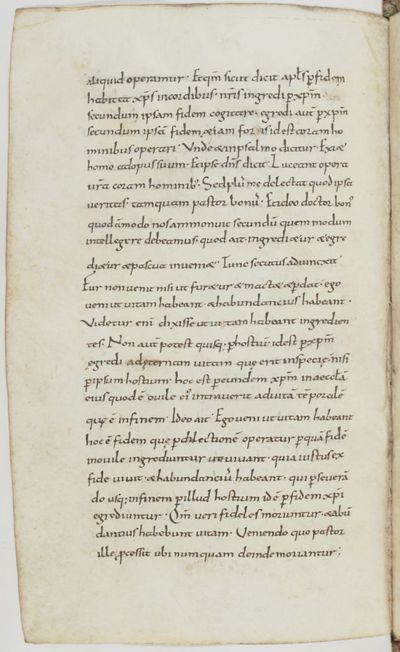 aliquid operamur. Et qm̄ sicut dicit apl̄s p̄ fidem
habitat xp̄s in cordibus nr̄is ingredi p̄ xp̄m.
secundum ipsam fidem cogitare. egredi aut̄ p̄ xp̄m
secundum ipsā fidem etiam foris id est coram ho
minibus operari. Unde & in psalmo dicitur. Exi&
homo ad opus suum. Et ipse dn̄s dicit. Luceant opera
vr̄a coram hominib;. Sed plus me delectat quod ipsa
veritas tamquam pastor bonus. Et ideo doctor bon;
quodāmodo nos ammonuit secundū quem modum
intellegere debeamus quod ait. ingredi&ur & egre
di&ur & pascua inueni&. Tunc secutus adiunxit.
Fur non uenit nisi ut fur&ur & mact& & p̄dat. ego
ueni ut uitam habeant. & habundancius habeant.
Videtur eni dixisse ut uitam habeant ingredien
tes. Non aut̄ potest quisq; p̄ hostiū id est p̄ xp̄m
egredi ad eternam uitam que erit in specie. nisi
p̄ ipsum hostium hoc est p̄ eundem xp̄m in aeccl̄a
eius quod ē ouile ei; intrauerit ad uitā tēporalē
que ē in fine. Ideo ait. Ego ueni ut uitam habeant
hoc ē fidem que p̄ dilectionē operatur p̄ quā fidē
in ouile ingrediuntur ut uiuant. quia iustus ex
fide uiuit. & habundanciū habeant. qui p̄seuerā
do usq; in finem p̄ illud hostium id ē p̄ fidem xp̄i
egrediuntur. Qm̄ ueri fideles moriuntur. & abū
dantius habebunt uitam. Veniendo quo pastor
ille p̄cessit ubi numquam deinde moriantur;